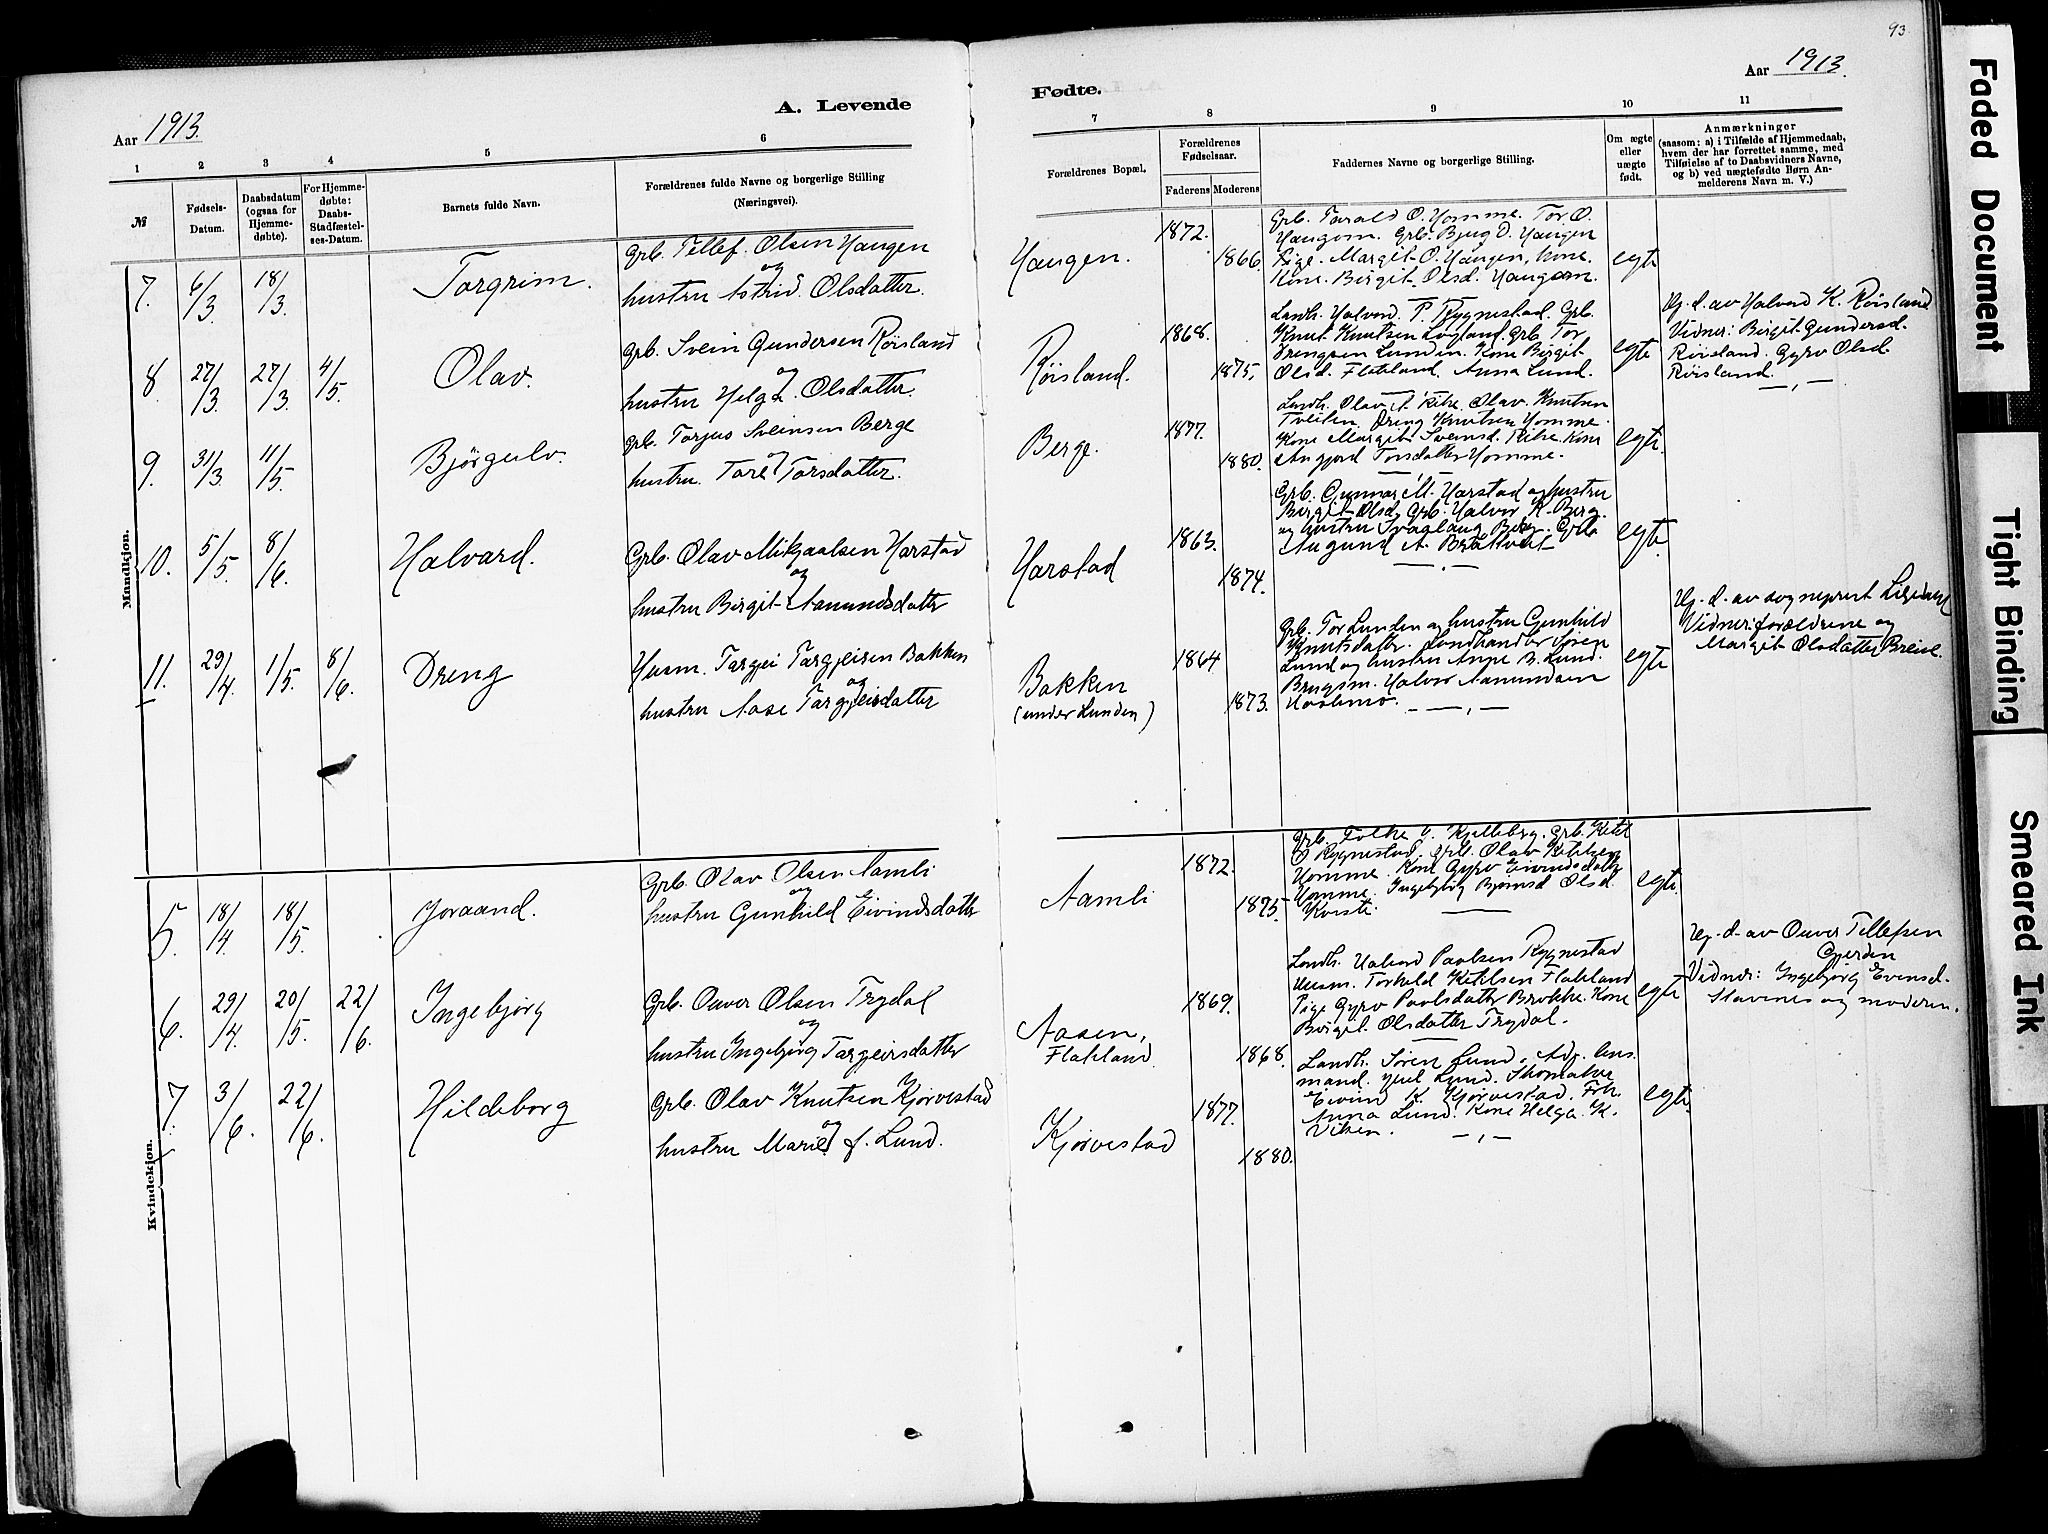 93
Aar 1913.
A. Levende
Fødte.
Aar 1913.
1 2 3 4 5 6 7 8 9 10 11
№
Fødsels-Datum.
Daabsdatum (ogsaa for Hjemmedøbte).
For Hjemmedøbte: Daabs-Stadfæstelses-Datum.
Barnets fulde Navn.
Forældrenes fulde Navne og borgerlige Stilling
(Næringsvei).
Forældrenes Bopæl.
Forældrenes Fødselsaar.
Faderens Moderens
Faddernes Navne og borgerlige Stilling.
Om ægte eller uægte født.
Anmærkninger
(saasom: a) i Tilfælde af Hjemmedaab,
hvem der har forrettet samme, med
Tilføielse af to Daabsvidners Navne,
og b) ved uægtefødte Børn Anmelderens Navn m. V.)
Mandkjøn.
7. 6/3 18/3. Torgrim.
Grb. Tellef Olsen Haugen
og
hustru Astrid Olsdatter.
Haugen. 1872. 1866.
Grb. Tarald O. Homme. Tor O.
Haugom. Grb. Bjug O. Haugen
Pige Margit O. Haugen, Kone.
Kone Birgit Olsd. Haugom.
egte
8. 27/3 27/3. 4/5 Olav.
Grb. Svein Gundersen Røisland
og
hustru Helga Olsdatter.
Røisland. 1868. 1875.
Landh. Halvord P. Rygnestad. Grb.
Knut Knutsen Løgland. Grb. Tor
Drengsen Lunden. Kone Birgit
Olsd. Flateland. Anna Lund.
egte
Hj. d. av Halvord K. Røisland
Vidner: Birgit Gundersd.
Røisland. Gyro Olsd.
Røisland.
9. 31/3 11/5. Bjørgulv.
Grb. Torjus Sveinsen Berge
og
hustru Tore Torsdatter.
Berge. 1877. 1880.
Landh. Olav A. Rike. Olav Knutsen
Tveiten. Dreng Knutsen Homme.
Kone Margit Sveinsd. Rike. Kone
Angjerd Torsdatter Homme.
egte.
10. 5/5. 8/6. Halvard.
Grb. Olav Mikjaalsen Harstad
og
hustru Birgit Aamundsdatter
Harstad 1863. 1874.
Grb. Gunnar M. Harstad og hustru
Birgit Olsd. Grb. Halvor K. Berg.
og hustru Svaglaug Berg. Grb.
Augund A. Brottveit
egte.
11. 29/4. 1/5. 8/6. Dreng
Husm. Targei Targeirsen Bakken
og
hustru Aase Targjeisdatter
Bakken
(under Lunden)
1864 1873.
Grb. Tor Lunden og hustru Gunhild
Knutsdatter. Landhandler Søren
Lund og hustru Anne B. Lund.
Brugsm. Halvor Aamundsen
egte
Hj. d. av sogneprest
Vidner: forældrene og
Margit Olsdatter Breive.
Kvindekjøn.
5. 18/4 18/5. Joraand.
Grb. Olav Olsen Aamli
og
hustru Gunhild Eivindsdatter
Aamli 1872. 1875.
Grb. Folke O. Kjelleberg. Grb. Ketil
O. Rygnestad. Grb. Olav Ketilsen
Homme. Kone Gyro Eivindsdatter
Homme. Ingebjørg Bjørnsd Olsd.
egte.
6. 29/4. 20/5. 22/6. Ingebjørg
Grb. Ouver Olsen Trydal
og
hustru Ingebjørg Targeirsdatter
Aasen,
Flateland.
1869. 1868.
Landh. Halvord Paalsen Rygnestad
Husm. Torkeld Ketilsen Flateland
Pige Gyro Paalsdatter Brokke. Kone
Birgit Olsdatter Trydal.
egte
Hj. d. av Ouver Tellefsen
Gjerden
Vidner: Ingebjørg Evensd.
Stavenes og moderen.
7. 3/6. 22/6. Hildeborg
Grb. Olav Knutsen Kjørvestad
og
hustru Marie f. Lund.
Kjørvestad 1877. 1880.
Landh. Søren Lund. Adj. lensmand. Juel Lund. Skomaker
Eivind K. Kjørvestad. Frk.
Anna Lund. Kone Helga K.
Viken.
egte.
Faded Document
Tight Binding
Smeared Ink